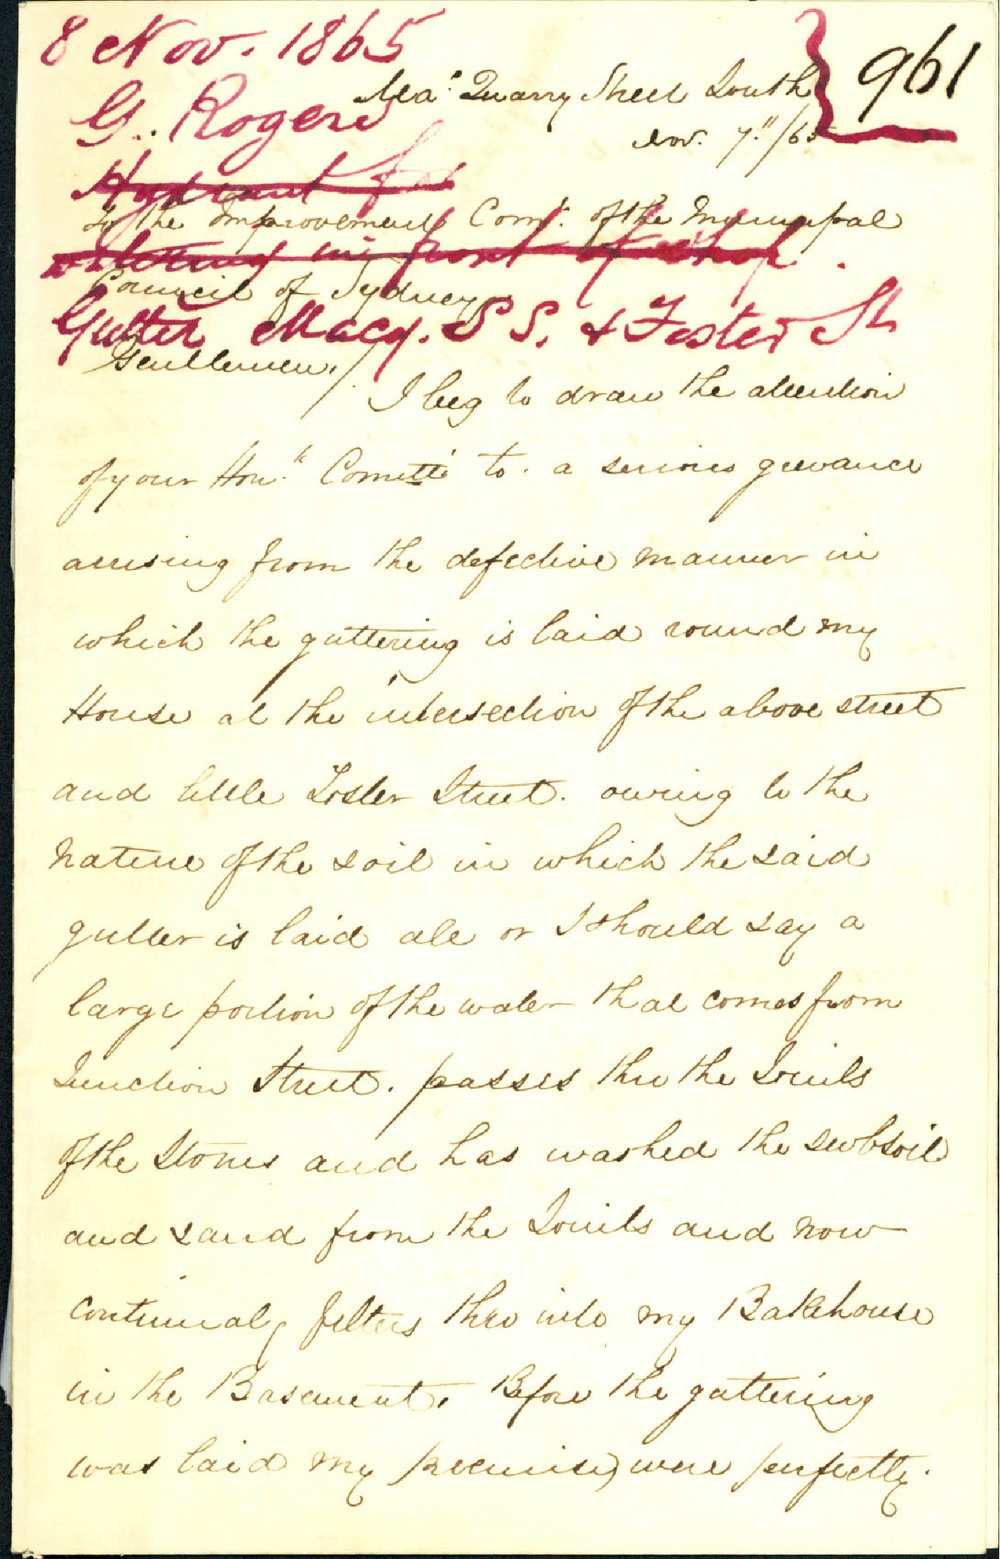 8 Nov. 1865
961
G. Rogers
Mac Quarry Street South
Nov. 7th/65
Hydrant for
To the Improvement Comt. of the Municipal
watering in front of shop.
Council of Sydney
Gutter Macq. St S. & Foster St
Gentlemen,/
I beg to draw the attention
of your Hon.ble Comtte to a serious greevance
arrising from the defective manner in
which the guttering is laid round my
House at the intersection of the above street
and little Foster Street. owing to the
nature of the soil in which the said
gutter is laid all or I should say a
large portion of the water that comes from
Junction Street. passes thro the Joints
of the Stones and has washed the subsoil
and sand from the Joints and now
continualy filters thro into my Bakehouse
in the Basement. Before the guttering
was laid my premises were perfectly